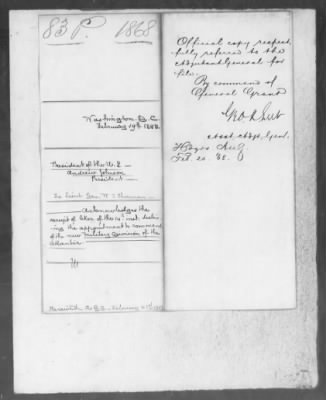 83 P. 1868
Washington D.C.
February 19th 1868.
President of the U.S.
Andrew Johnson
President
To Lieut. Gen. W. T. Sherman
Acknowledges the
receipt of letter of the 14th inst. declin-
ing the appointment to command
of the new Military Division of the
Atlantic.
February 21st 1868
Official copy respect-
fully referred to the
Adjutant General for
file.
By command of
General Grant
Asst Adjt. Genl.
Hdqrs A.U.S.
Feb. 20. 68.